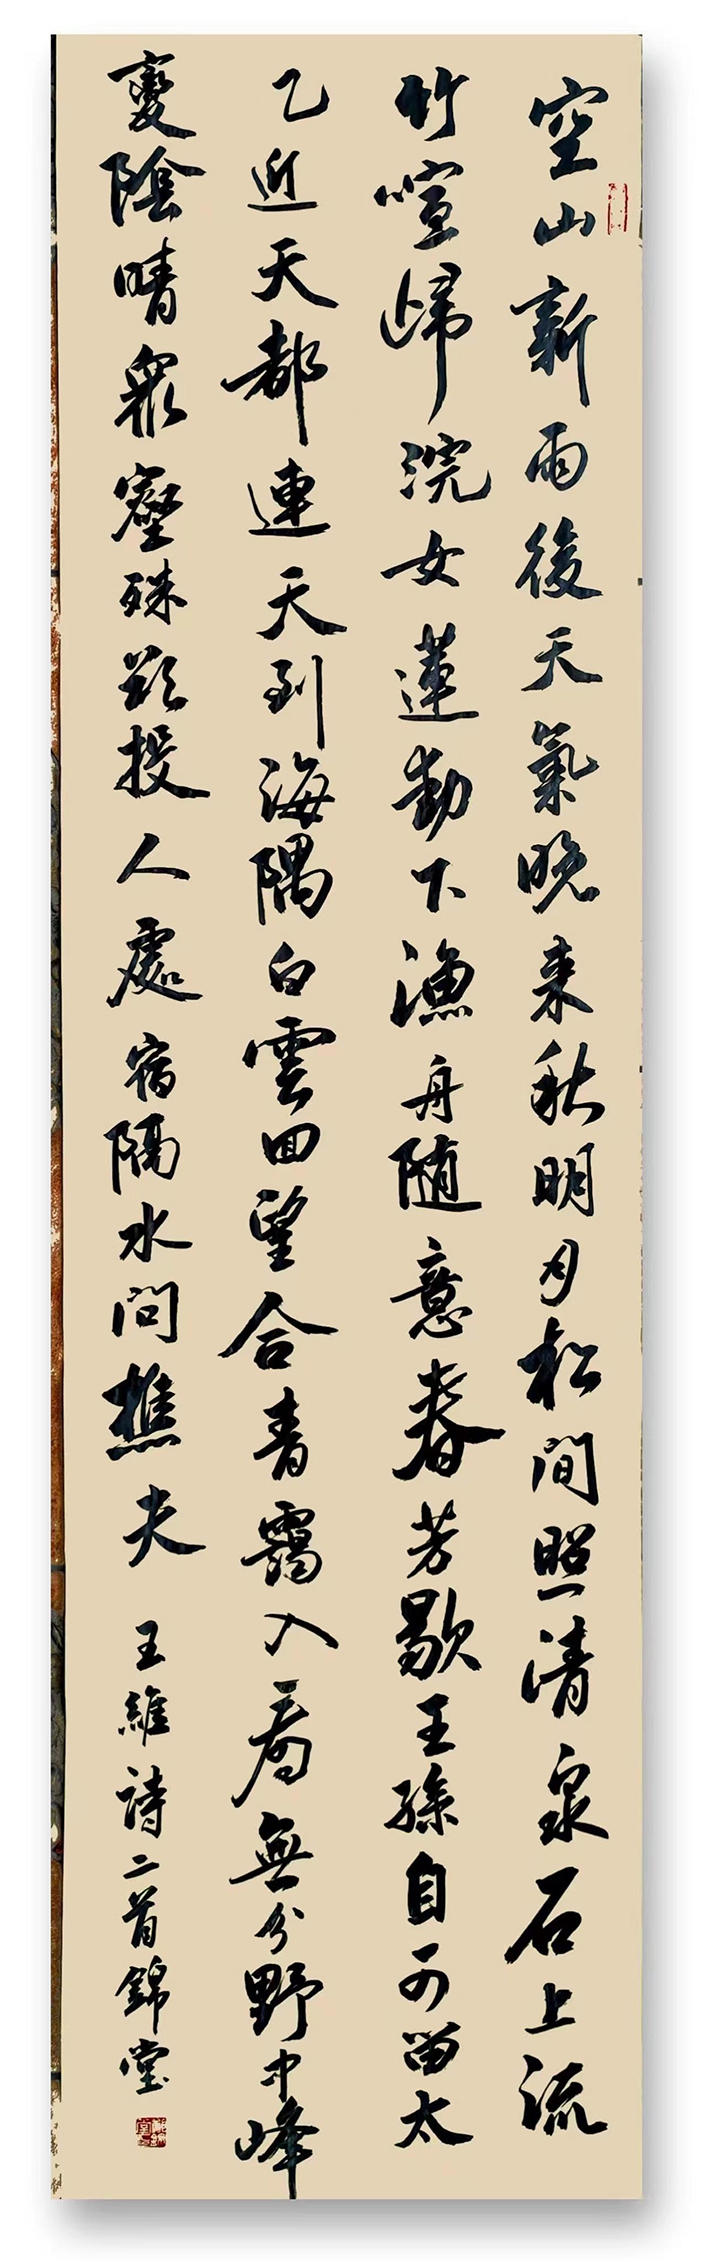 空山新雨後天氣晚来秋明月松間照清泉石上流
竹喧歸浣女蓮動下漁舟随意春芳歇王孫自可留太
乙近天都連天到海隅白雲回望合青靄入看無分野中峰
變陰晴衆壑殊欲投人處宿隔水問樵夫 王維詩二首錦堂